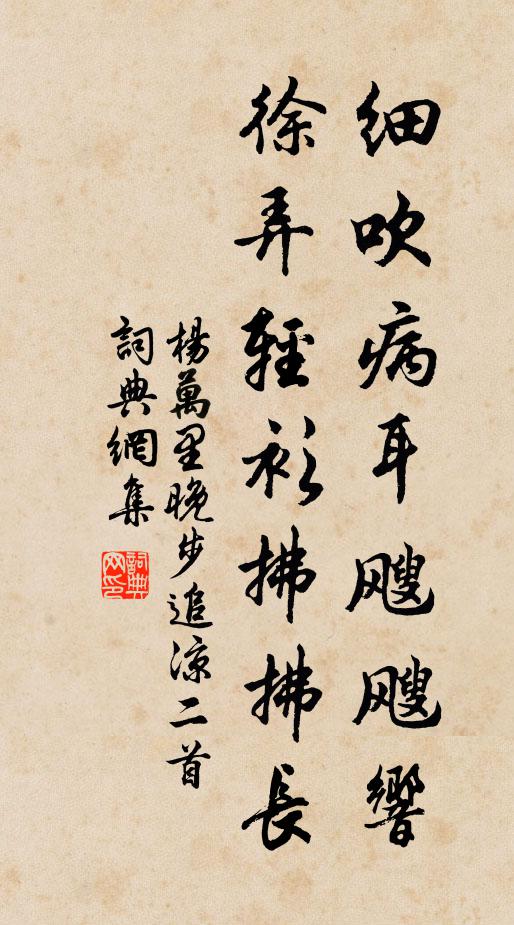 細吹病耳颼颼響
徐弄輕衫拂拂長
楊萬里晚步追涼二首
詞典網集
詞典網印